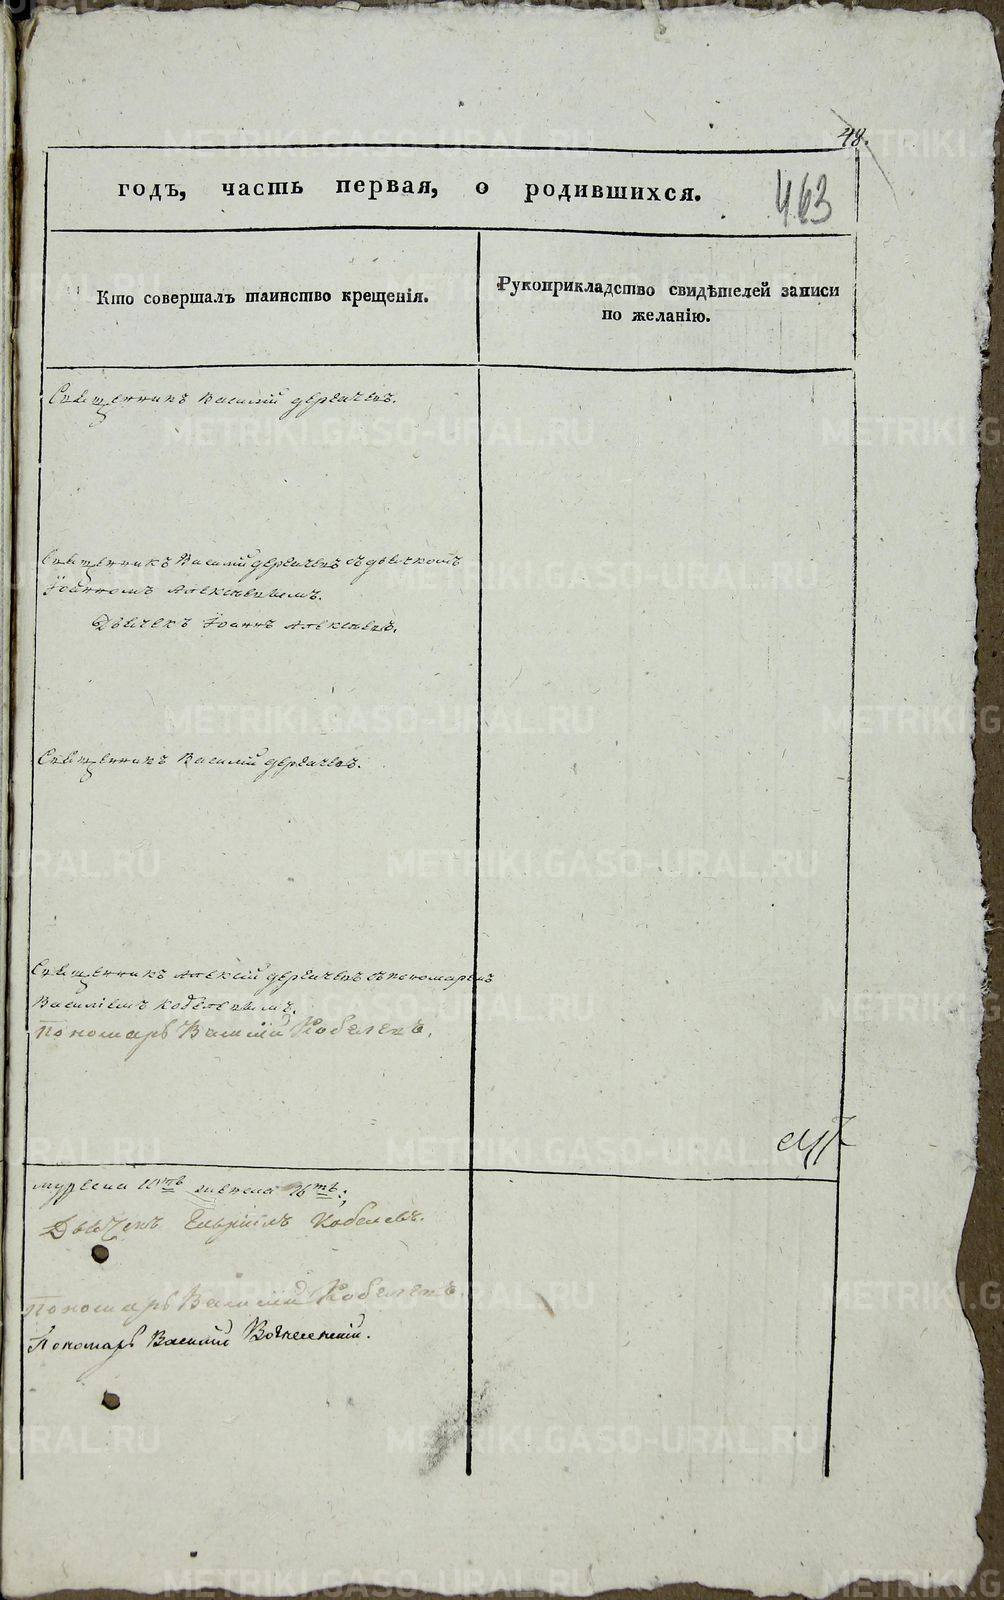 48.
годъ, часть первая, о родившихся.
463
Кто совершалъ таинство крещенія.
Рукоприкладство свидѣтелей записи
по желанію.
Священникъ Василій
Священникъ Василій съ дьячкомъ
Іоанномъ Алексѣевымъ.
Дьячекъ Іоаннъ Алексѣевъ.
Священникъ Василій
Священникъ Алексій съ пономаремъ
Василіемъ Кобелевымъ.
Пономарь Василій Кобелевъ.
Дьячекъ Гавріилъ Кобелевъ.
Пономарь Василій Кобелевъ
Пономарь Василій Вознесенскій.
METRIKI.GASO-URAL.RU